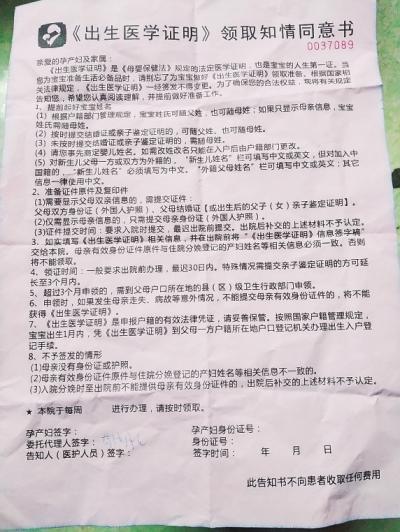 《出生医学证明》领取知情同意书
0037089
亲爱的孕产妇及家属:
《出生医学证明》是《母婴保健法》规定的法定医学证明,也是宝宝的人生第一证。当
您为宝宝准备生活必备品时,请别忘了为宝宝做好《出生医学证明》领取准备。根据国家相
关法律规定,《出生医学证明》一经签发不得变更。为了确保您的合法权益,现将有关规定
告知您,希望您认真阅读理解,并提前做好准备工作。
1、提前起好宝宝姓名
(1)根据户籍部门管理规定,宝宝姓氏可随父姓,也可随母姓;如果只显示母亲信息,宝宝
姓氏需随母姓。
(2)按时提交结婚证或亲子鉴定证明的,可随父姓,也可随母姓。
(3)未按时提交结婚证或亲子鉴定证明的,需随母姓。
(4)请您事先商定婴儿姓名,如需改姓改名只能在入户后由户籍部门更改。
(5)对新生儿父母一方或双方为外籍的,"新生儿姓名"栏可填写中文或英文,但对加入中
国籍的,"新生儿姓名"必须填写为中文。"外籍父母姓名"栏可填写中文或英文;其它
信息一律使用中文。
2、准备证件原件及复印件
(1)需要显示父母双亲信息的,需提交证件:
父母双方身份证(外国人护照)、父母结婚证【或出生后的父子(女)亲子鉴定证明】。
(2)仅需显示母亲信息的,只需提交母亲身份证(外国人护照)。
(3)证件提交时间:要求入院时提交,最迟出院前提交。出院后补交的上述材料不予认定。
3、如实填写《出生医学证明》相关信息,并在出院前将"《出生医学证明》信息签字稿"
交给本院。母亲有效身份证原件与住院分娩登记的产妇姓名等相关信息必须一致。否则
将不能领取。
4、领证时间:一般要求出院前办理,最迟30日内。特殊情况需提交亲子鉴定证明的方可延
长至3个月内。
5、超过3个月申领的,需到父母户口所在地的县(区)级卫生行政部门申领。
6、申领时,如果发生母亲走失、病故等意外情况,不能提交母亲有效身份证件的,将不能
获得《出生医学证明》。
7、《出生医学证明》是申报户籍的有效法律凭证,请妥善保管。按照国家户籍管理规定,
宝宝出生1月内,凭《出生医学证明》到父母一方户籍所在地户口登记机关办理出生入户登
记手续。
8、不予签发的情形
(1)母亲没有身份证或护照。
(2)母亲有效身份证件原件与住院分娩登记的产妇姓名等相关信息不一致的。
(3)入院分娩时至出院前不能提供母亲有效身份证件的,出院后补交的上述材料不予认定。
★ 本院于每周 进行办理,请按时领取。
孕产妇签字: 孕产妇身份证号:
委托代理人签字: 身份证号:
告知人(医护人员)签字: 签字时间: 年 月 日
此告知书不向患者收取任何费用